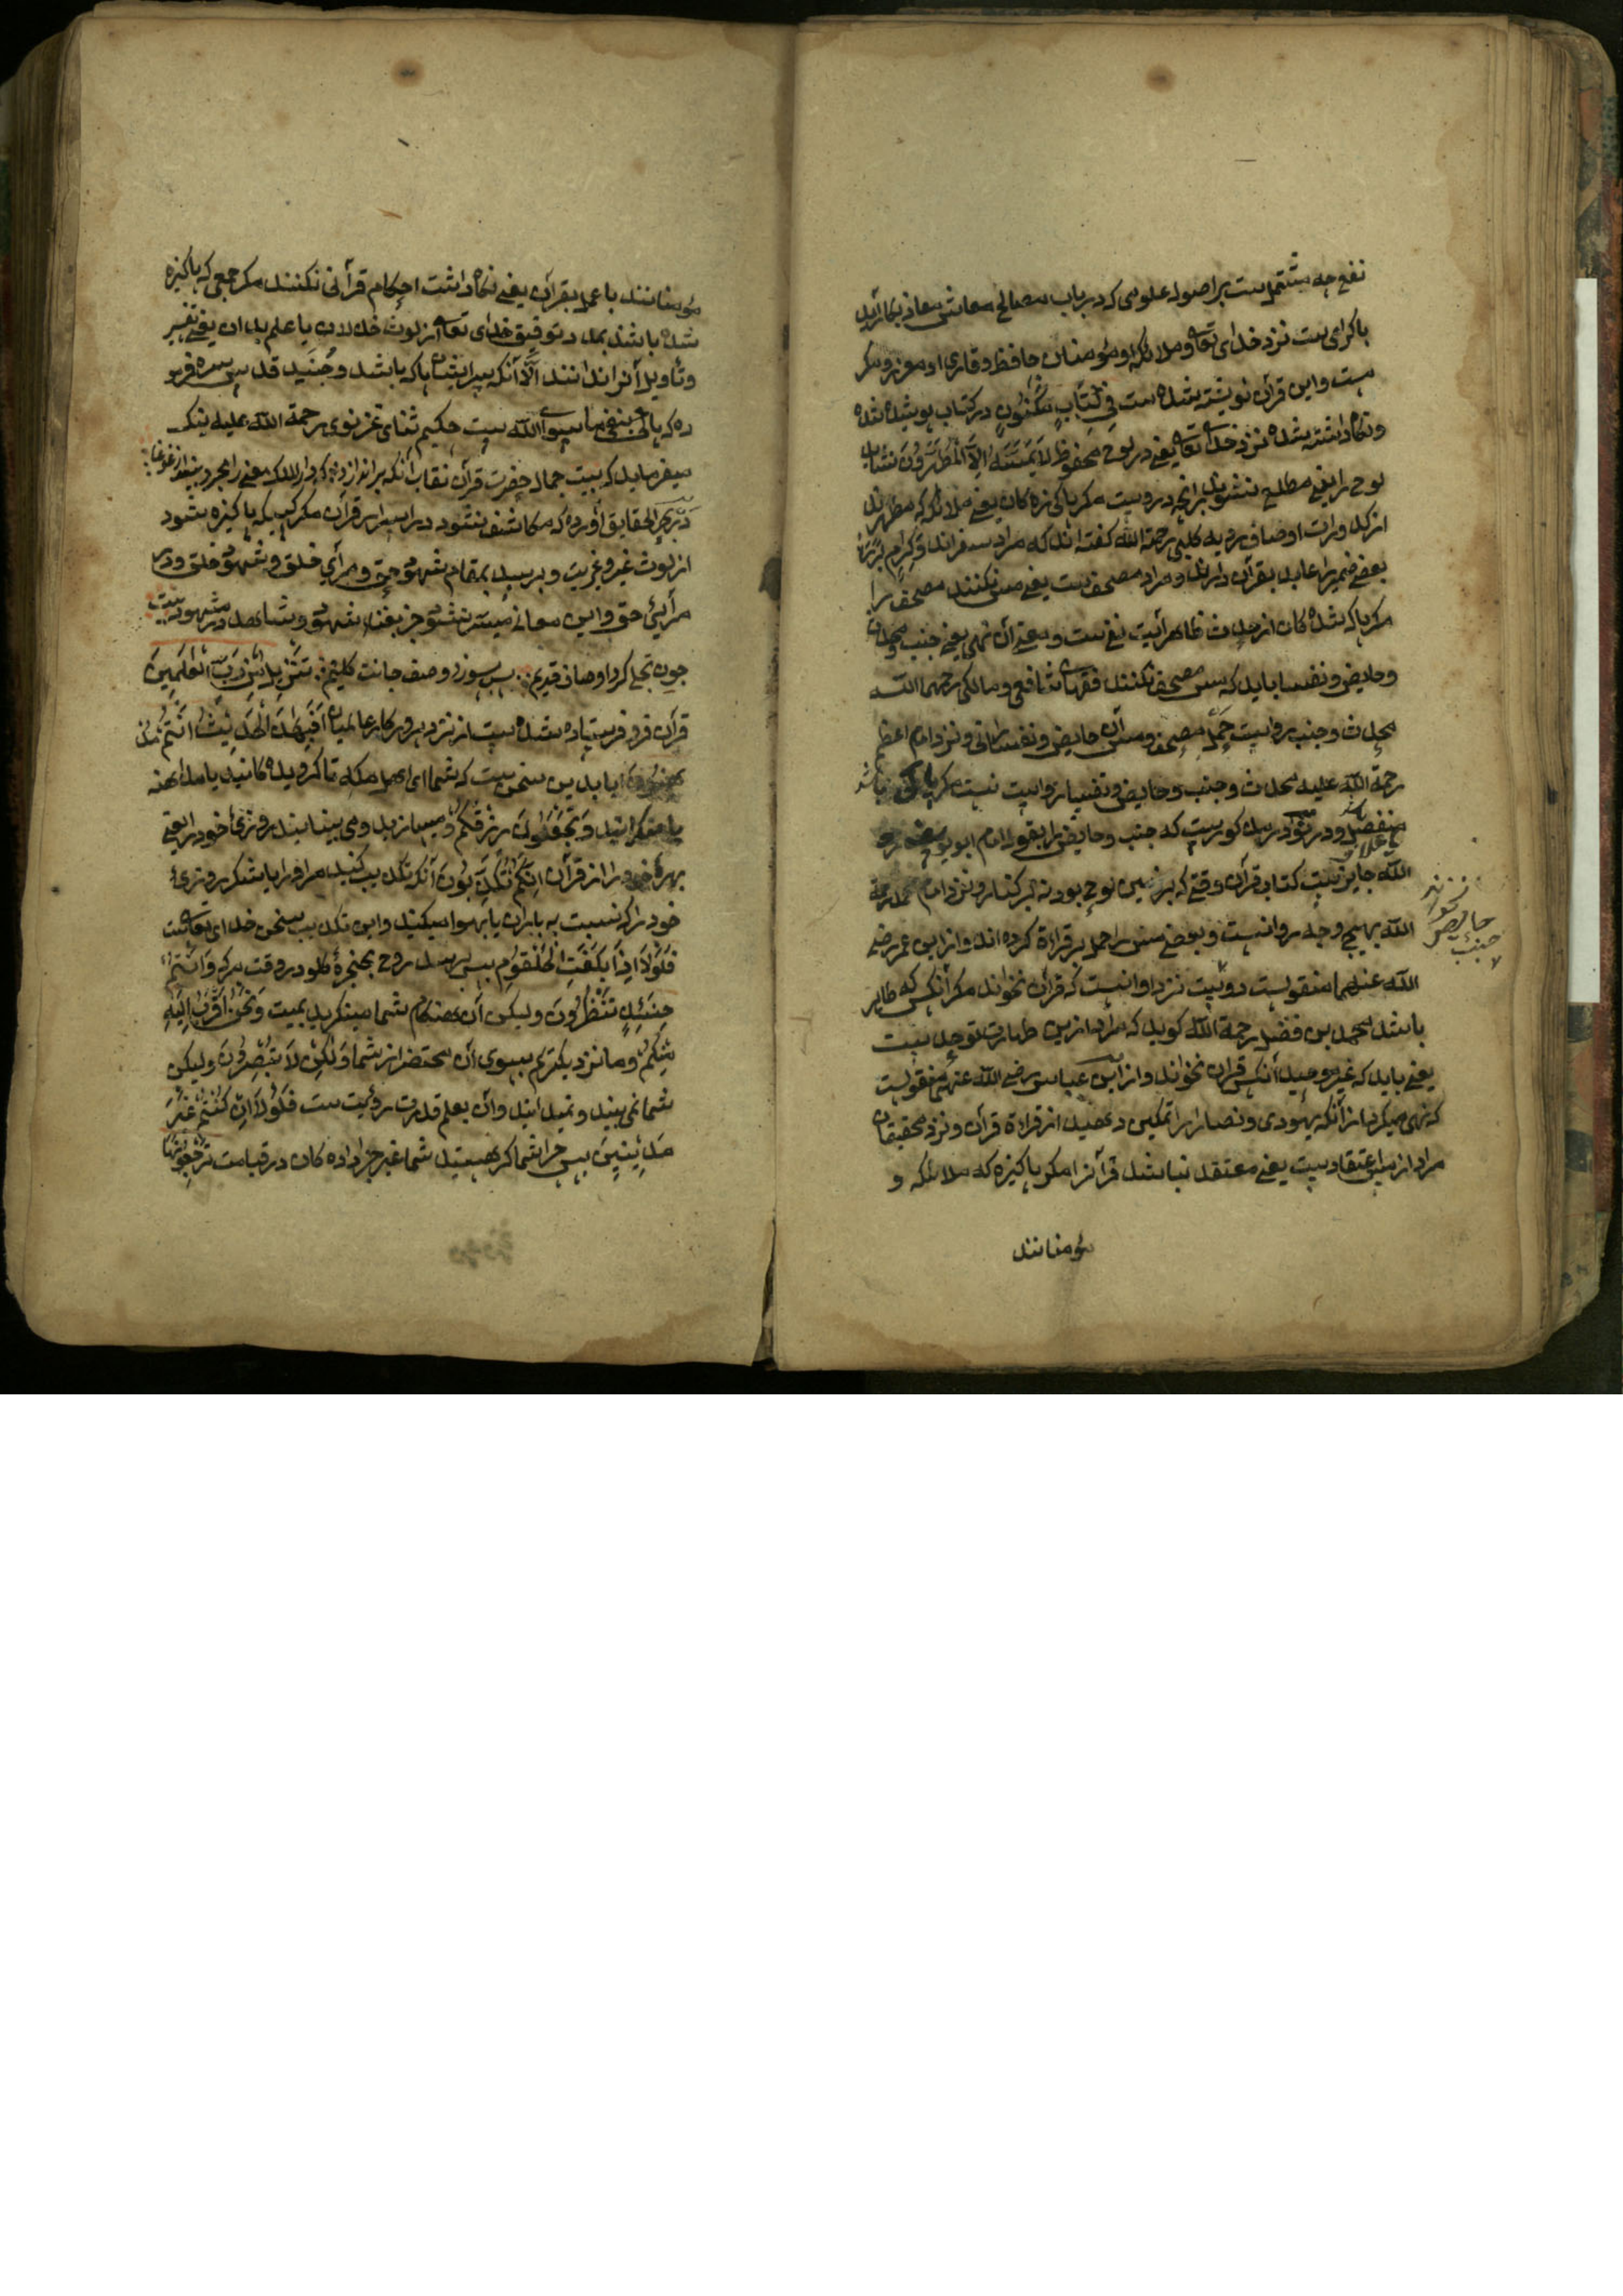 نفع چه مشتمل ست بر اصول علومی که در باب مصالح معاش و معاد بکار آید
یا کرامی ست نزد خدای تعالی و ملائکه و مؤمنان حافظ و قاری او معزز و مکرم
ست و این قرآن نوشته شده ست فِی کِتَابٍ مَکْنُونٍ در کتاب پوشیده شده
و نگاه داشته شده نزد خدای تعالی یعنی در لوح محفوظ لَا یَمَسُّهُ اِلَّا الْمُطَهَّرُونَ نساید
لوح را یعنی مطلع نشوید برانچه دروست مکر پاکیزه کان یعنی ملائکه که مطهرند
از کدورات اوصاف ردیه کلبی رحمة الله کفته اند که مراد سفراند و کِرام بَرَرَة
بعضی ضمیر را عاید بقرآن دارند و مراد مصحف ست یعنی مس نکنند مصحف را
مکر پاک شده کان از حدث ظاهر آیت نفی ست و معنی آن نهی یعنی جنب و محدث
و حایض و نفسا باید که مس مصحف نکنند فقهای شافعی و مالکی رحمهما الله
محدث و جنب روا نیست حمل مصحف و مس آن حایض و نفسا را نی و نزد امام اعظم
رحمة الله علیه محدث و جنب و حایض و نفسا را روا نیست مس مکر با غلافی
منفصل و در کوریست که جنب و حایض را بقول امام ابو یوسف رحمة
الله جایز نیست کتاب قرآن وقتی که بر زمین لوح بود نه بر کنار و نزد امام محمد رحمة
الله بهیچ وجه روا نیست و بعضی مس را حمل بر قراءة کرده اند و از ابن عمر رضی
الله عنهما منقولست دوست نزد او آنست که قرآن نخواند مکر آنکس که طاهر
باشد محمد بن فضل رحمة الله کوید که مراد ازین طهارت توحید ست
یعنی باید که غیر موحید آنکس قران نخواند و از ابن عباس رضی الله عنهم منقولست
که نهی میکرد از آنکه یهودی و نصارا را تمکین دهند از قراءة قرآن و نزد محقیقان
مراد از مس اعتقاد ست یعنی معتقد نباشد قرآن را مکر پاکیزه که ملائکه و
مؤمنانند
جنب
مؤمنانند یا عمل بقرآن یعنی نکاه داشت احکام قرآنی نکنند مکر جمعی که پاکیزه
شده باشند بمدد توفیق خدای تعالی از لوث خذلان یا علم بدان یعنی تفسیر
و تأویل آنرا ندانند الا آنکه سرایشان پاک باشد و جُنَید قدس سره فرمو
ده که پاکی بنفی ما سوی الله ست حکیم ثنای غزنوی رحمة الله علیه نیکـ
میفرماید که بیت جمال حضرت قرآن نقاب آنکه براندازد که دارالملک معنی را مجرد بیند از غوغا
در بحر الحقایق آورده که مکاشف نشود در اسرار قرآن مکر کسیکه پاکیزه شود
از لوث غیر و غیریت و برسد بمقام شهود حق و مرآی خلق و شهود خلق و در
مرآیئ حق و این معانی میسر نشود جز بفنا شهود و شاهد در مشهود بیت
چون تجلی کرد اوصاف قدیم پس بسوزد وصف حادث کلیم تَنْزِیلٌ مِنْ رَبِّ الْعٰلَمِینَ
قرآن فرو فرستاده شده ست از نزد پروردکار عالمیان اَفَبِهٰذَا الْحَدِیْثِ اَنْتُمْ مُدْ
هِنُونَ آیا بدین سخن ست که شما ای اهل مکه ناکرویده کانید یا مداهنه
یا منکرانید وَ تَجْعَلُونَ رِزْقَکُمْ و میسازید و می بینانید روزئ خود را یعنی
بهرۀ خود را از قرآن اِنَّکُمْ تُکَذِّبُونَ آنکه تکذیب کنید مر او را یا شکر روزئ
خود را که نسبت به باران یا بهوا میکنید و این تکذیب سخن خدای تعالی ست
فَلَوْلَا اِذَا بَلَغَتِ الْحُلْقُومَ پس چون برسد روح بحنجرۀ کلو در وقت مرک وَ اَنْتُمْ
حِیْنَئِذٍ تَنْظُرُونَ و لیکن آن هنکام شما مینکرید بمیت وَ نَحْنُ اَقْرَبُ اِلَیْهِ
مِنْکُمْ و ما نزدیکتریم بسوی آن محتضر از شما وَلٰکِنْ لَا تُبْصِرُونَ و لیکن
شما نمی بینید و نمیدانید و آن بعلم قدرت رؤیت ست فَلَوْلَا اِنْ کُنْتُمْ غَیْرَ
مَدِیْنِیْنَ پس چرا شما کر هستید شما غیر جزا داده کان در قیامت تَرْجِعُونَهَا